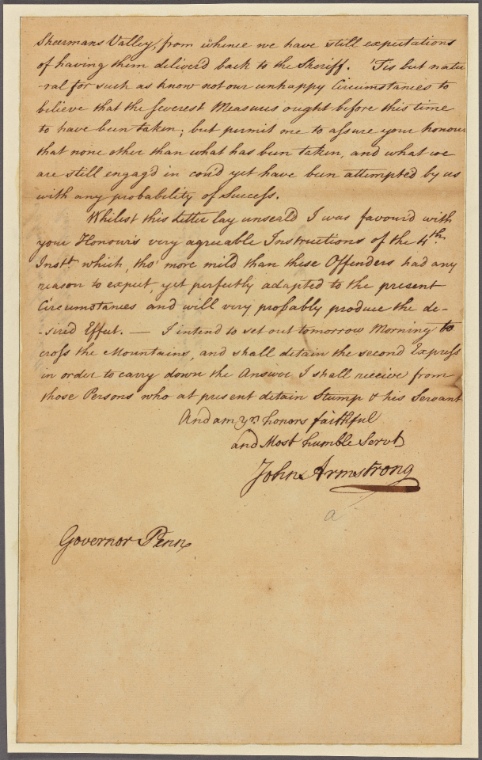 Sheermans Valley, from whence we have still expectations
of having them deliverd back to the Sheriff. 'Tis but natu-
-ral for such as know not our unhappy Circumstances to
believe that the severest Measures ought before this time
to have been taken; but permit me to assure your honour
that none other than what has been taken, and what we
are still engagd in coud yet have been attempted by us
with any probability of Success.
Whilest this Letter lay unseald I was favourd with
your Honour's very agreable Instructions of the 4th
Instt. which, tho' more mild than these Offenders had any
reason to expect, yet perfectly adapted to the present
Circumstances and will very probably produce the de-
-sired Effect. — I intend to set out tomorrow Morning to
cross the Mountains, and shall detain the second Express
in order to carry down the Answer I shall receive from
those Persons who at present detain Stump & his Servant
And am yr. honors faithful
and Most humble Servt
John Armstrong
a
Governor Penn